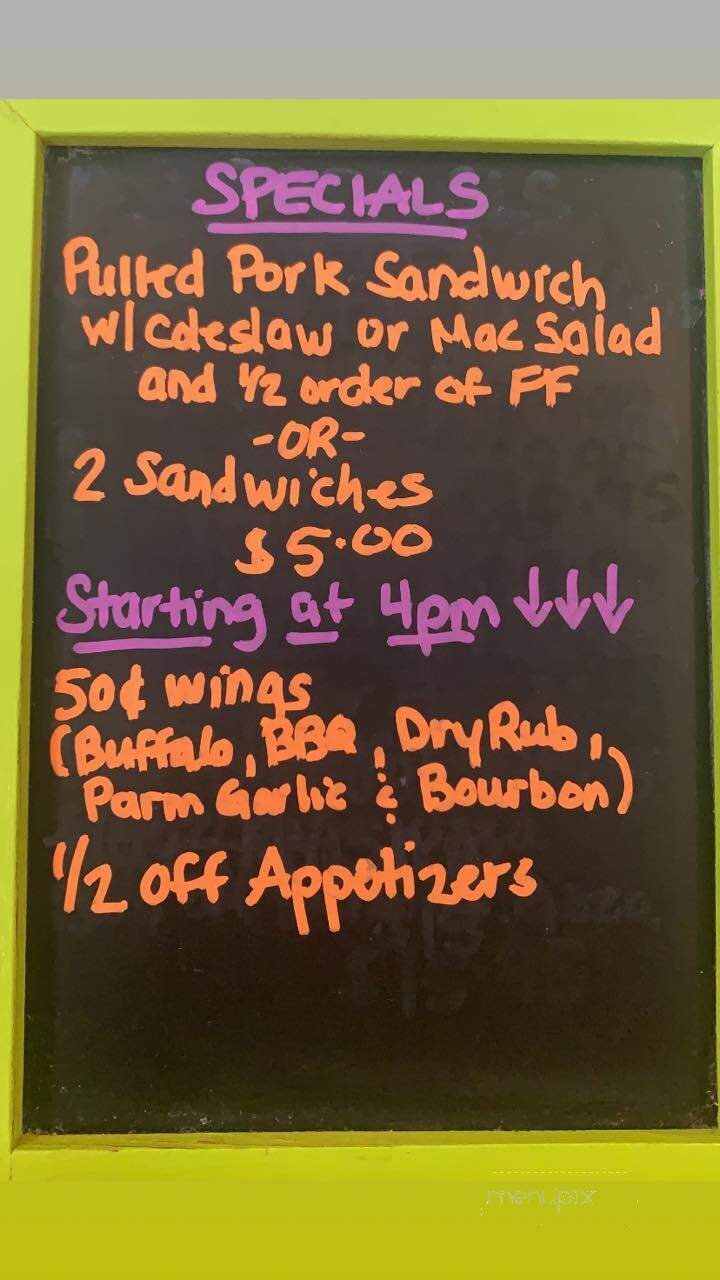 SPECIALS
Pulled Pork Sandwich
w/ Coleslaw or Mac Salad
and 1/2 order of FF
-OR-
2 Sandwiches
$5.00
Starting at 4pm ↓↓↓
50¢ wings
(Buffalo, BBQ, Dry Rub,
Parm Garlic & Bourbon)
1/2 off Appetizers
menupix